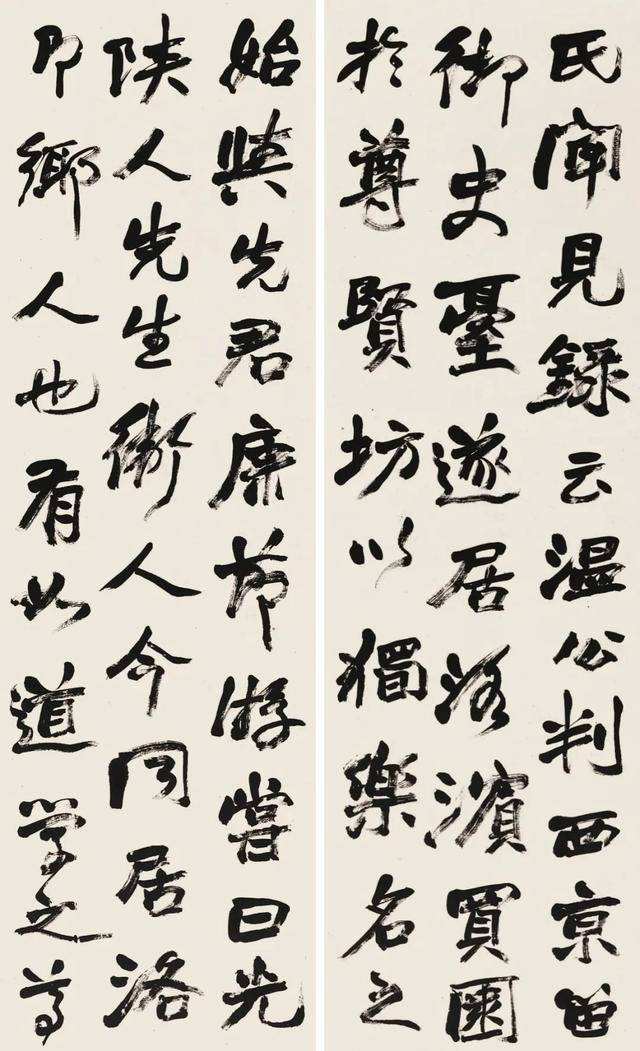 氏聞見錄云温公判西京留
御史臺遂居洛濱買園
於尊賢坊以獨樂名之
始與先君康節游嘗曰光
陝人先生衛人今同居洛
即鄉人也有如道学之尊